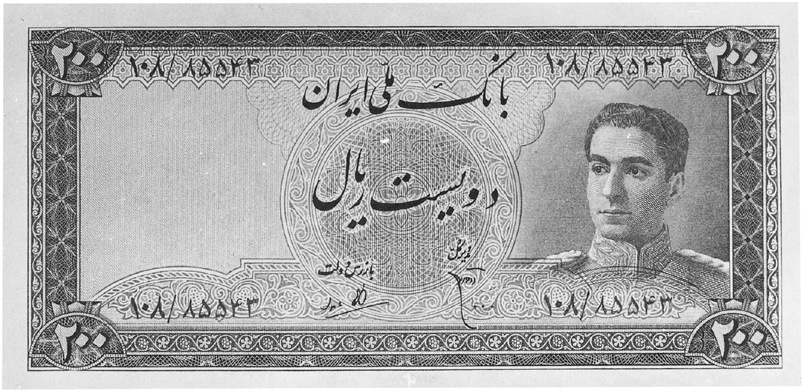 ۲۰۰ ۲۰۰
۱۰۸/۸۵۵۴۳ ۱۰۸/۸۵۵۴۳
بانک ملی ایران
دویست ریال
مدیر کل
بازرس دولت
۱۰۸/۸۵۵۴۳ ۱۰۸/۸۵۵۴۳
۲۰۰ ۲۰۰